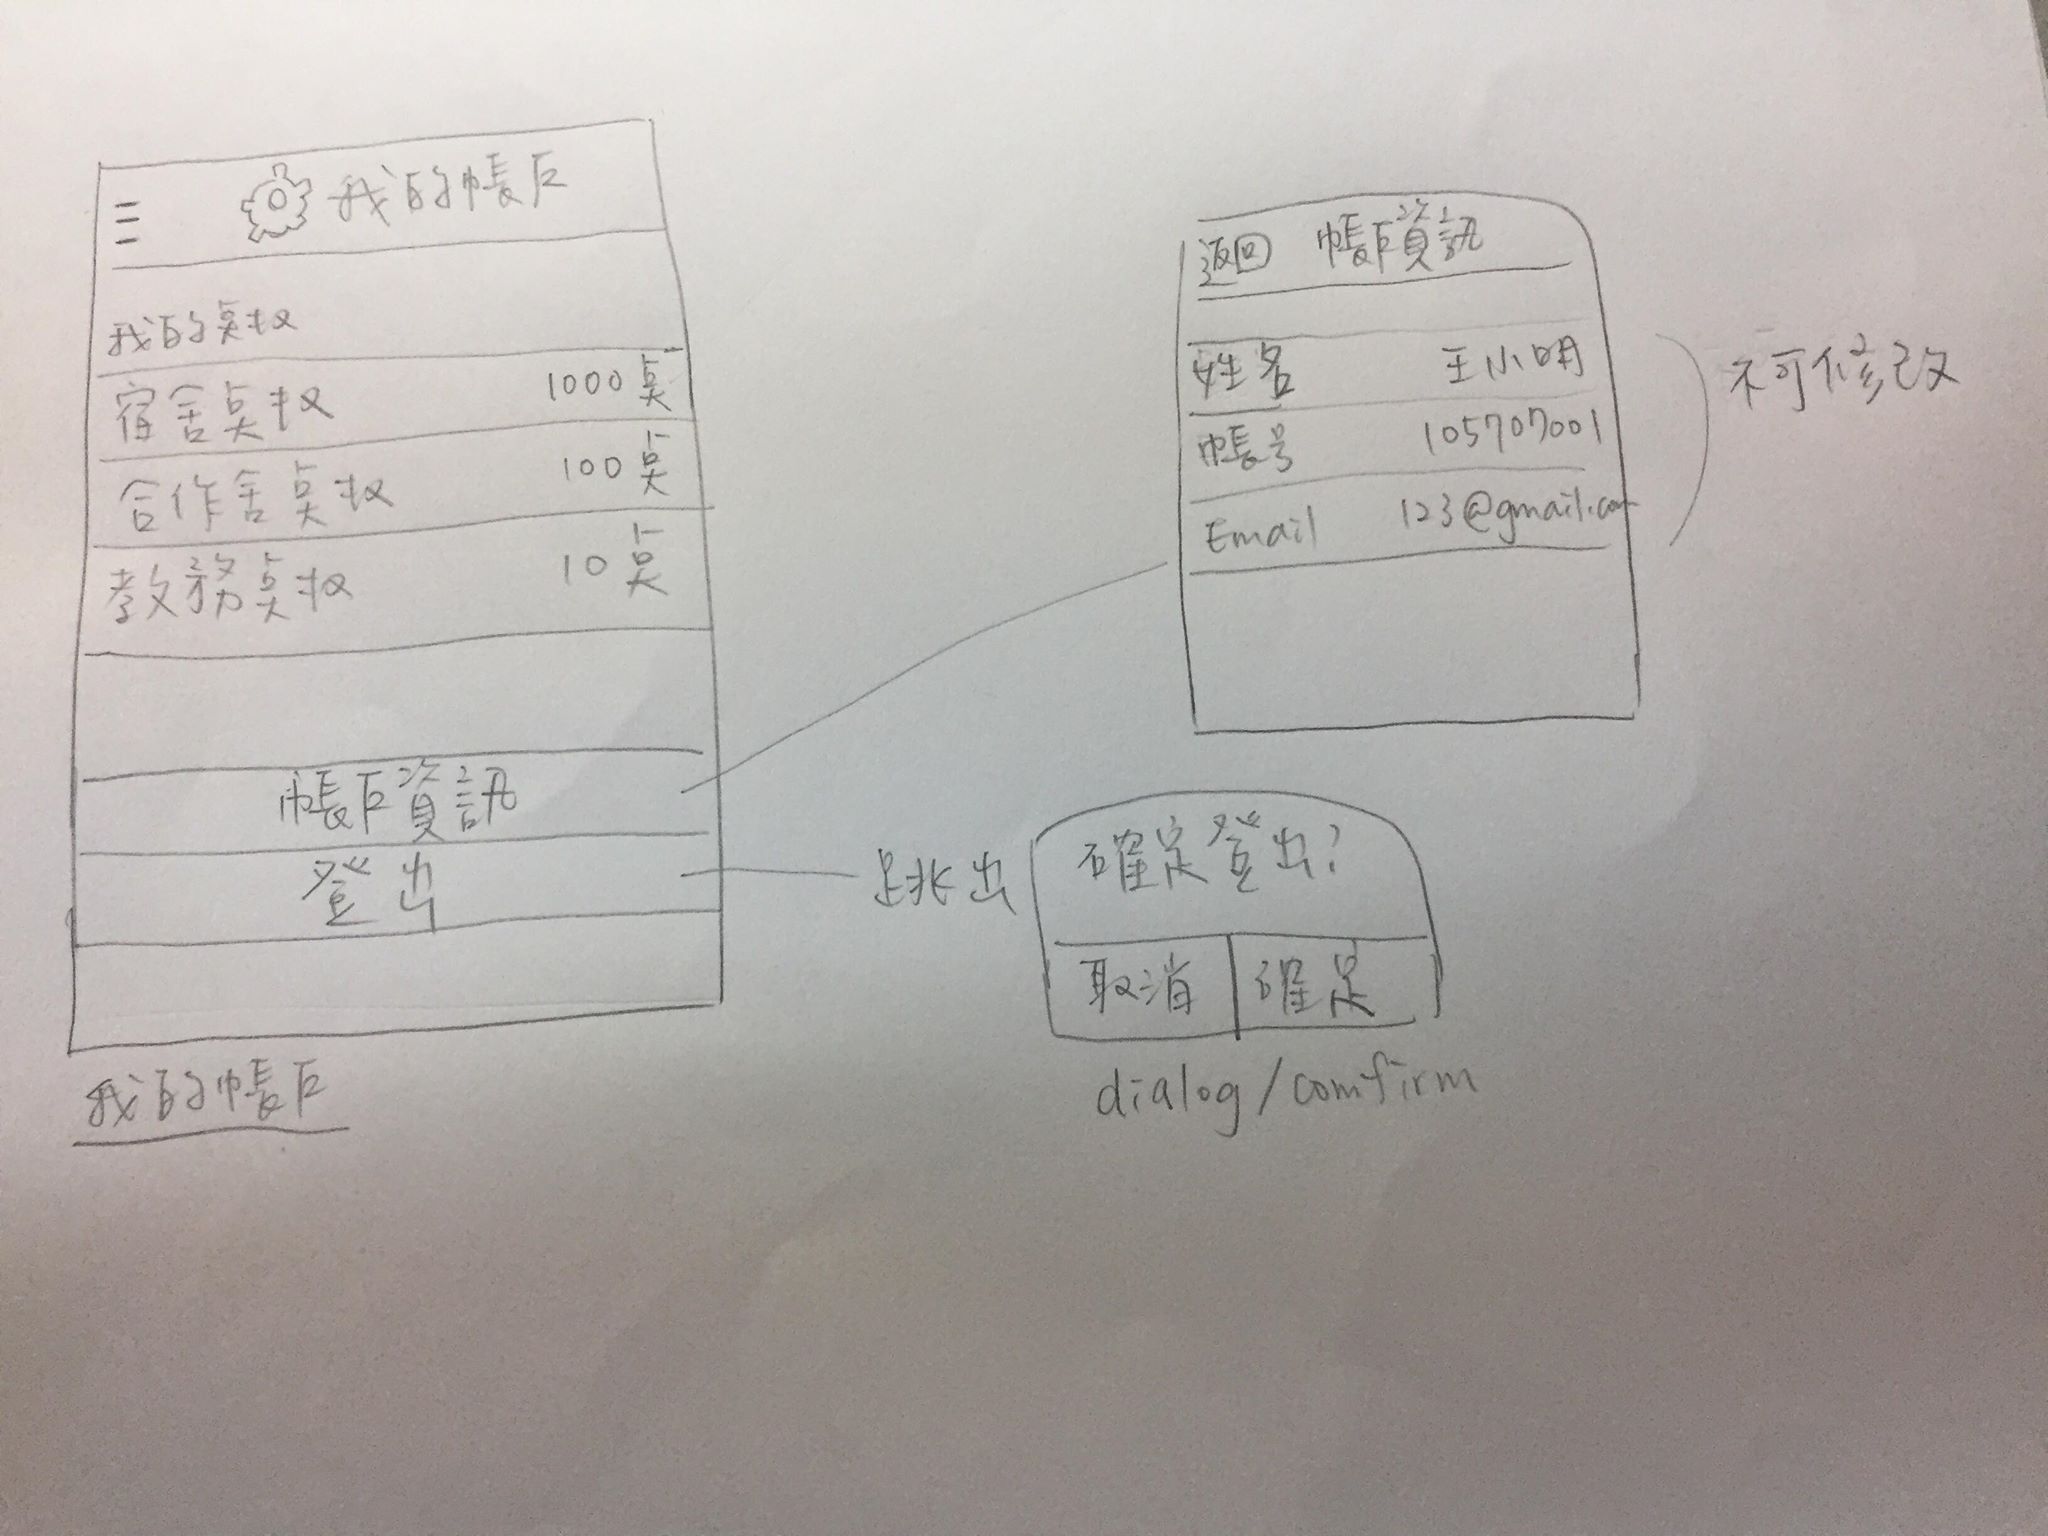 我的帳戶
我的點数
宿舍點数 1000點
合作舍點数 100點
教務點数 10點
帳戶資訊
登出
我的帳戶
返回 帳戶資訊
姓名 王小明
帳号 105707001
Email 123@gmail.com
不可修改
跳出
確定登出?
取消 確定
dialog/comfirm